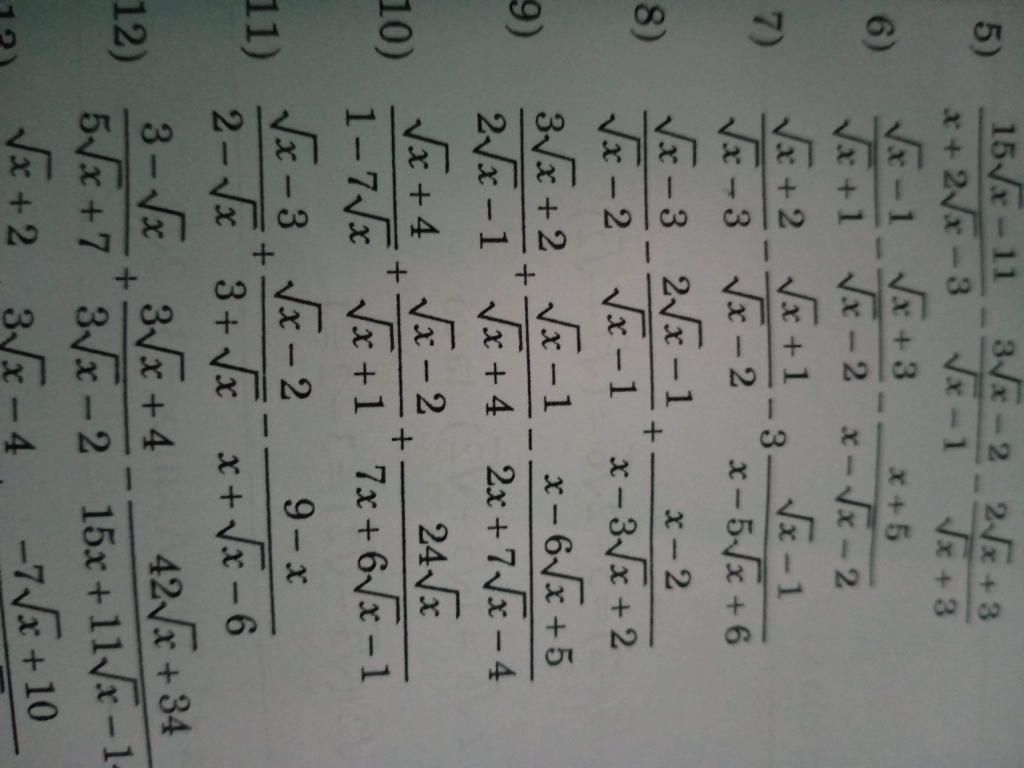 5) (15√x − 11)/(x + 2√x − 3) − (3√x − 2)/(√x − 1) − (2√x + 3)/(√x + 3)
6) (√x − 1)/(√x + 1) − (√x + 3)/(√x − 2) − (x + 5)/(x − √x − 2)
7) (√x + 2)/(√x − 3) − (√x + 1)/(√x − 2) − 3 (√x − 1)/(x − 5√x + 6)
8) (√x − 3)/(√x − 2) − (2√x − 1)/(√x − 1) + (x − 2)/(x − 3√x + 2)
9) (3√x + 2)/(2√x − 1) + (√x − 1)/(√x + 4) − (x − 6√x + 5)/(2x + 7√x − 4)
10) (√x + 4)/(1 − 7√x) + (√x − 2)/(√x + 1) + (24√x)/(7x + 6√x − 1)
11) (√x − 3)/(2 − √x) + (√x − 2)/(3 + √x) − (9 − x)/(x + √x − 6)
12) (3 − √x)/(5√x + 7) + (3√x + 4)/(3√x − 2) − (42√x + 34)/(15x + 11√x − 1
13) √x + 2 3√x − 4 −7√x + 10